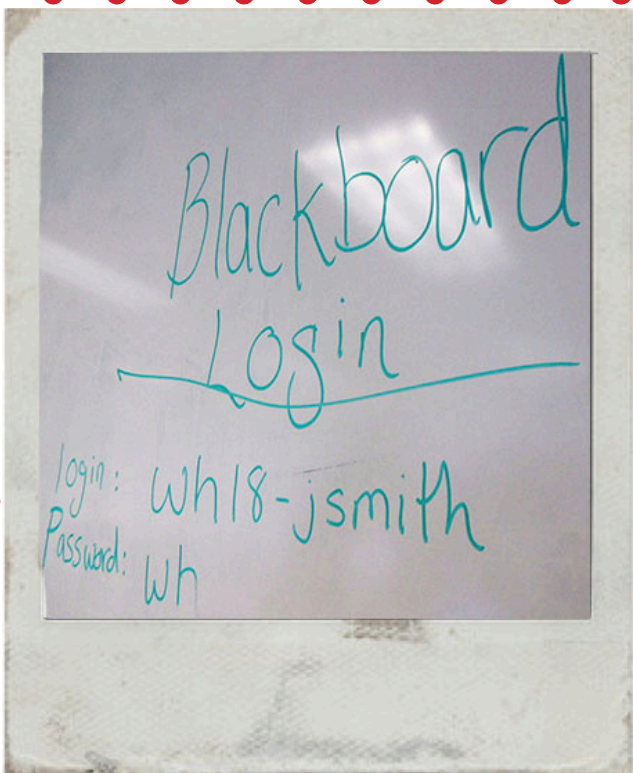 Blackboard
Login
login: wh18-jsmith
Password: wh